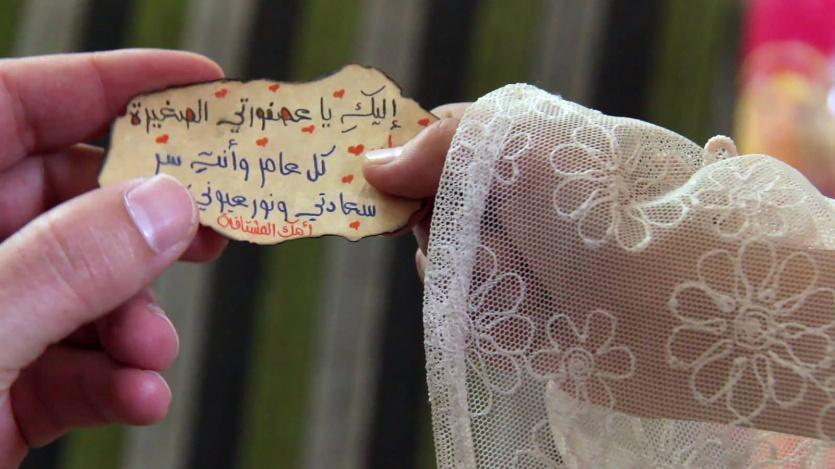 إليكِ يا عصفورتي الصغيرة
كل عام وأنتِ سر
سعادتي ونور عيوني
أمك المشتاقة